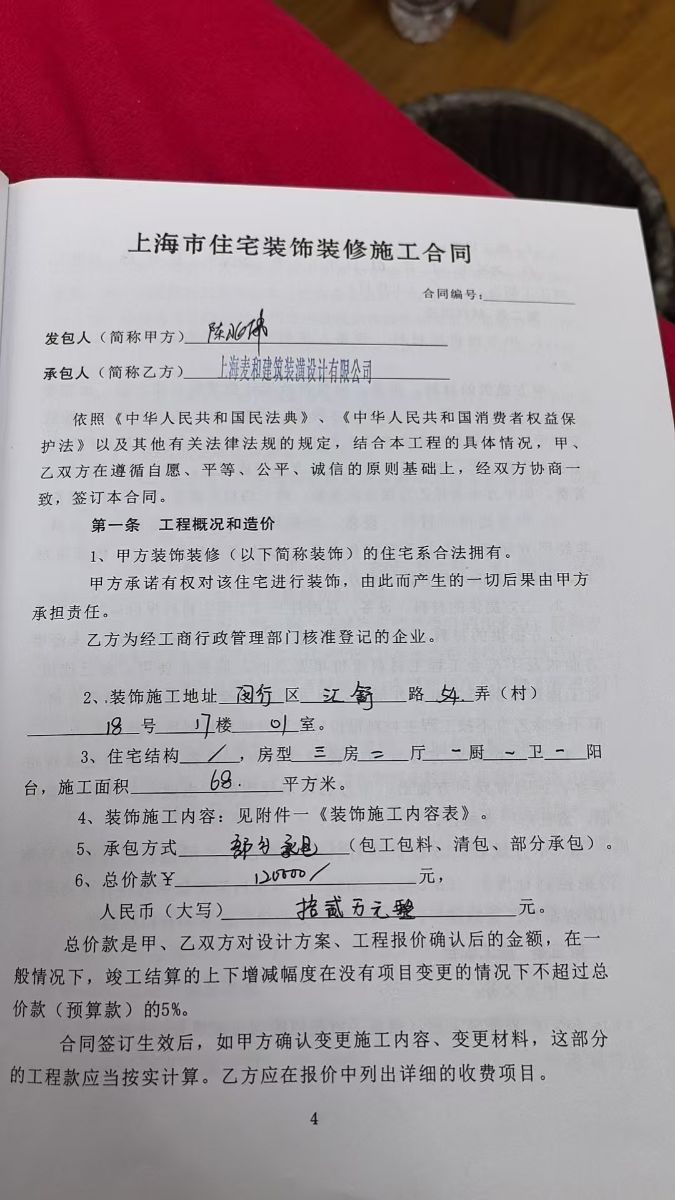 上海市住宅装饰装修施工合同
合同编号:
发包人（简称甲方）陈
承包人（简称乙方）上海麦和建筑装潢设计有限公司
依照《中华人民共和国民法典》、《中华人民共和国消费者权益保
护法》以及其他有关法律法规的规定，结合本工程的具体情况，甲、
乙双方在遵循自愿、平等、公平、诚信的原则基础上，经双方协商一
致，签订本合同。
第一条 工程概况和造价
1、甲方装饰装修（以下简称装饰）的住宅系合法拥有。
甲方承诺有权对该住宅进行装饰，由此而产生的一切后果由甲方
承担责任。
乙方为经工商行政管理部门核准登记的企业。
2、装饰施工地址 闵行 区 江 路 54 弄（村）
18 号 17 楼 01 室。
3、住宅结构 / ，房型 三 房 二 厅 一 厨 一 卫 一 阳
台，施工面积 68. 平方米。
4、装饰施工内容：见附件一《装饰施工内容表》。
5、承包方式 部分承包 （包工包料、清包、部分承包）。
6、总价款¥ 120000/ 元，
人民币（大写） 拾贰万元整 元。
总价款是甲、乙双方对设计方案、工程报价确认后的金额，在一
般情况下，竣工结算的上下增减幅度在没有项目变更的情况下不超过总
价款（预算款）的5%。
合同签订生效后，如甲方确认变更施工内容、变更材料，这部分
的工程款应当按实计算。乙方应在报价中列出详细的收费项目。
4